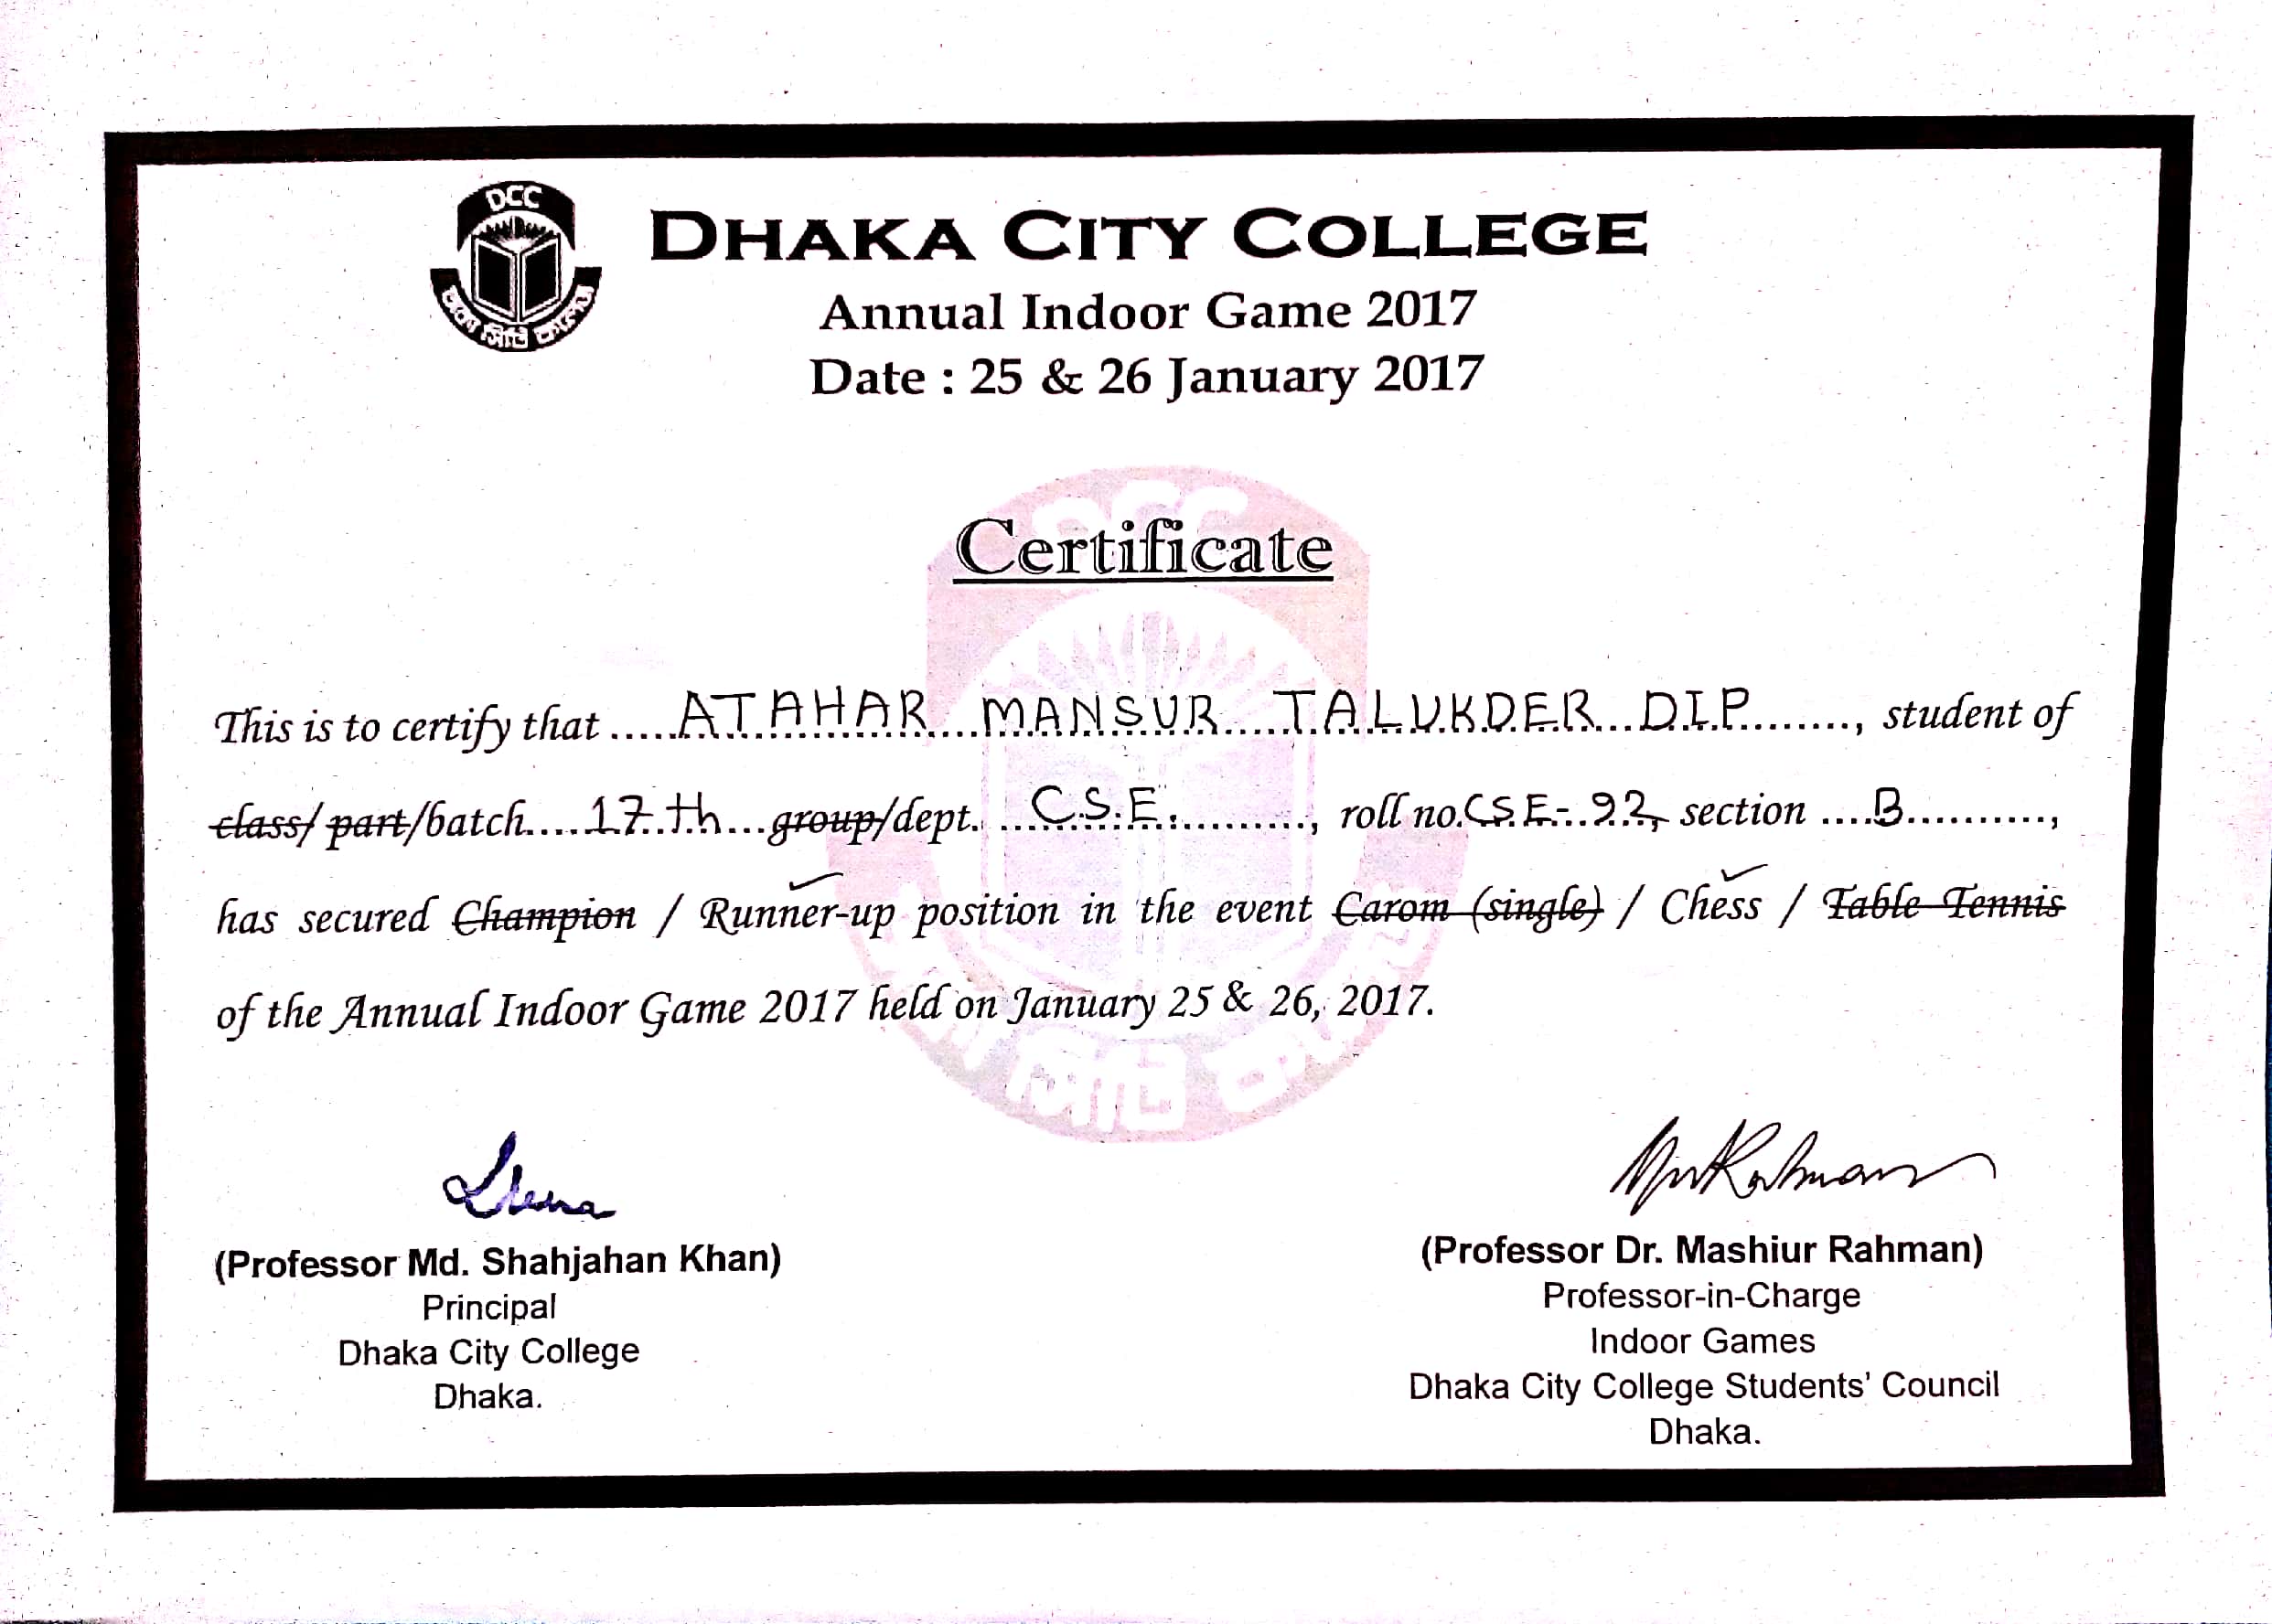 DCC
ঢাকা সিটি কলেজ
DHAKA CITY COLLEGE
Annual Indoor Game 2017
Date : 25 & 26 January 2017
Certificate
This is to certify that .....ATAHAR MANSUR TALUKDER DIP........, student of
class/ part/batch....17th...group/dept. ...C.S.E..........., roll no.CSE-92, section ....B..........,
has secured Champion / Runner-up position in the event Carom (single) / Chess / Table Tennis
of the Annual Indoor Game 2017 held on January 25 & 26, 2017.
(Professor Md. Shahjahan Khan)
Principal
Dhaka City College
Dhaka.
(Professor Dr. Mashiur Rahman)
Professor-in-Charge
Indoor Games
Dhaka City College Students' Council
Dhaka.